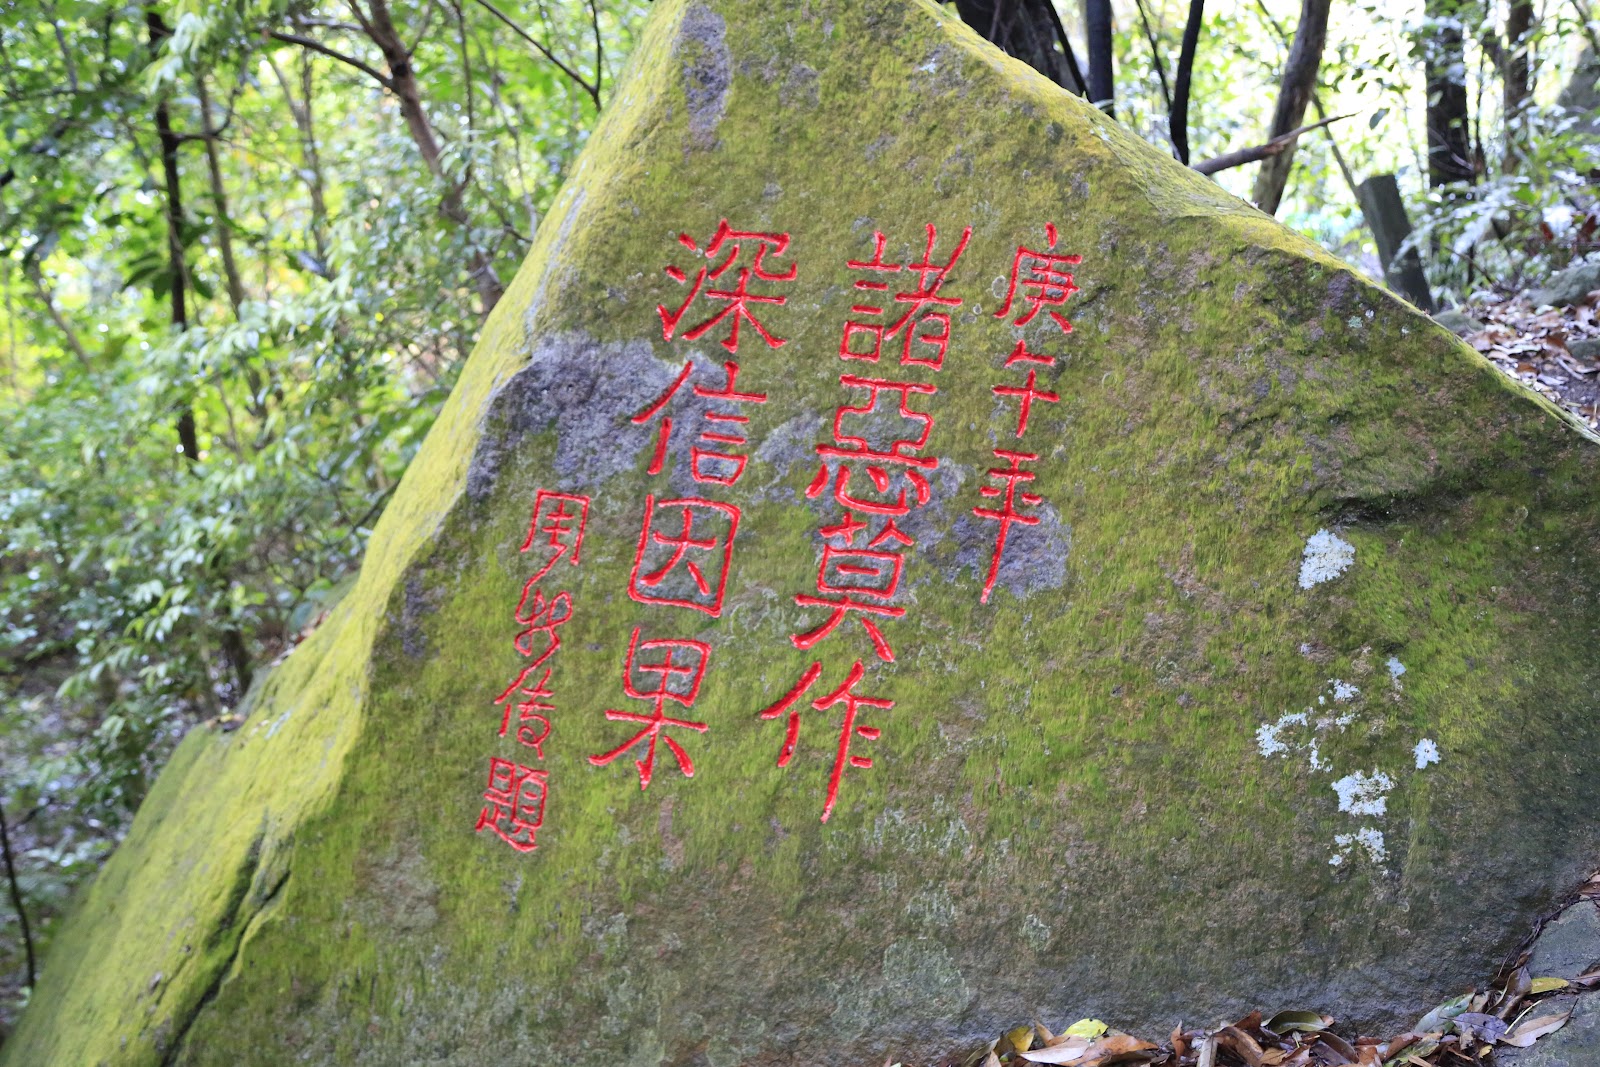 庚午年
諸惡莫作
深信因果
周題